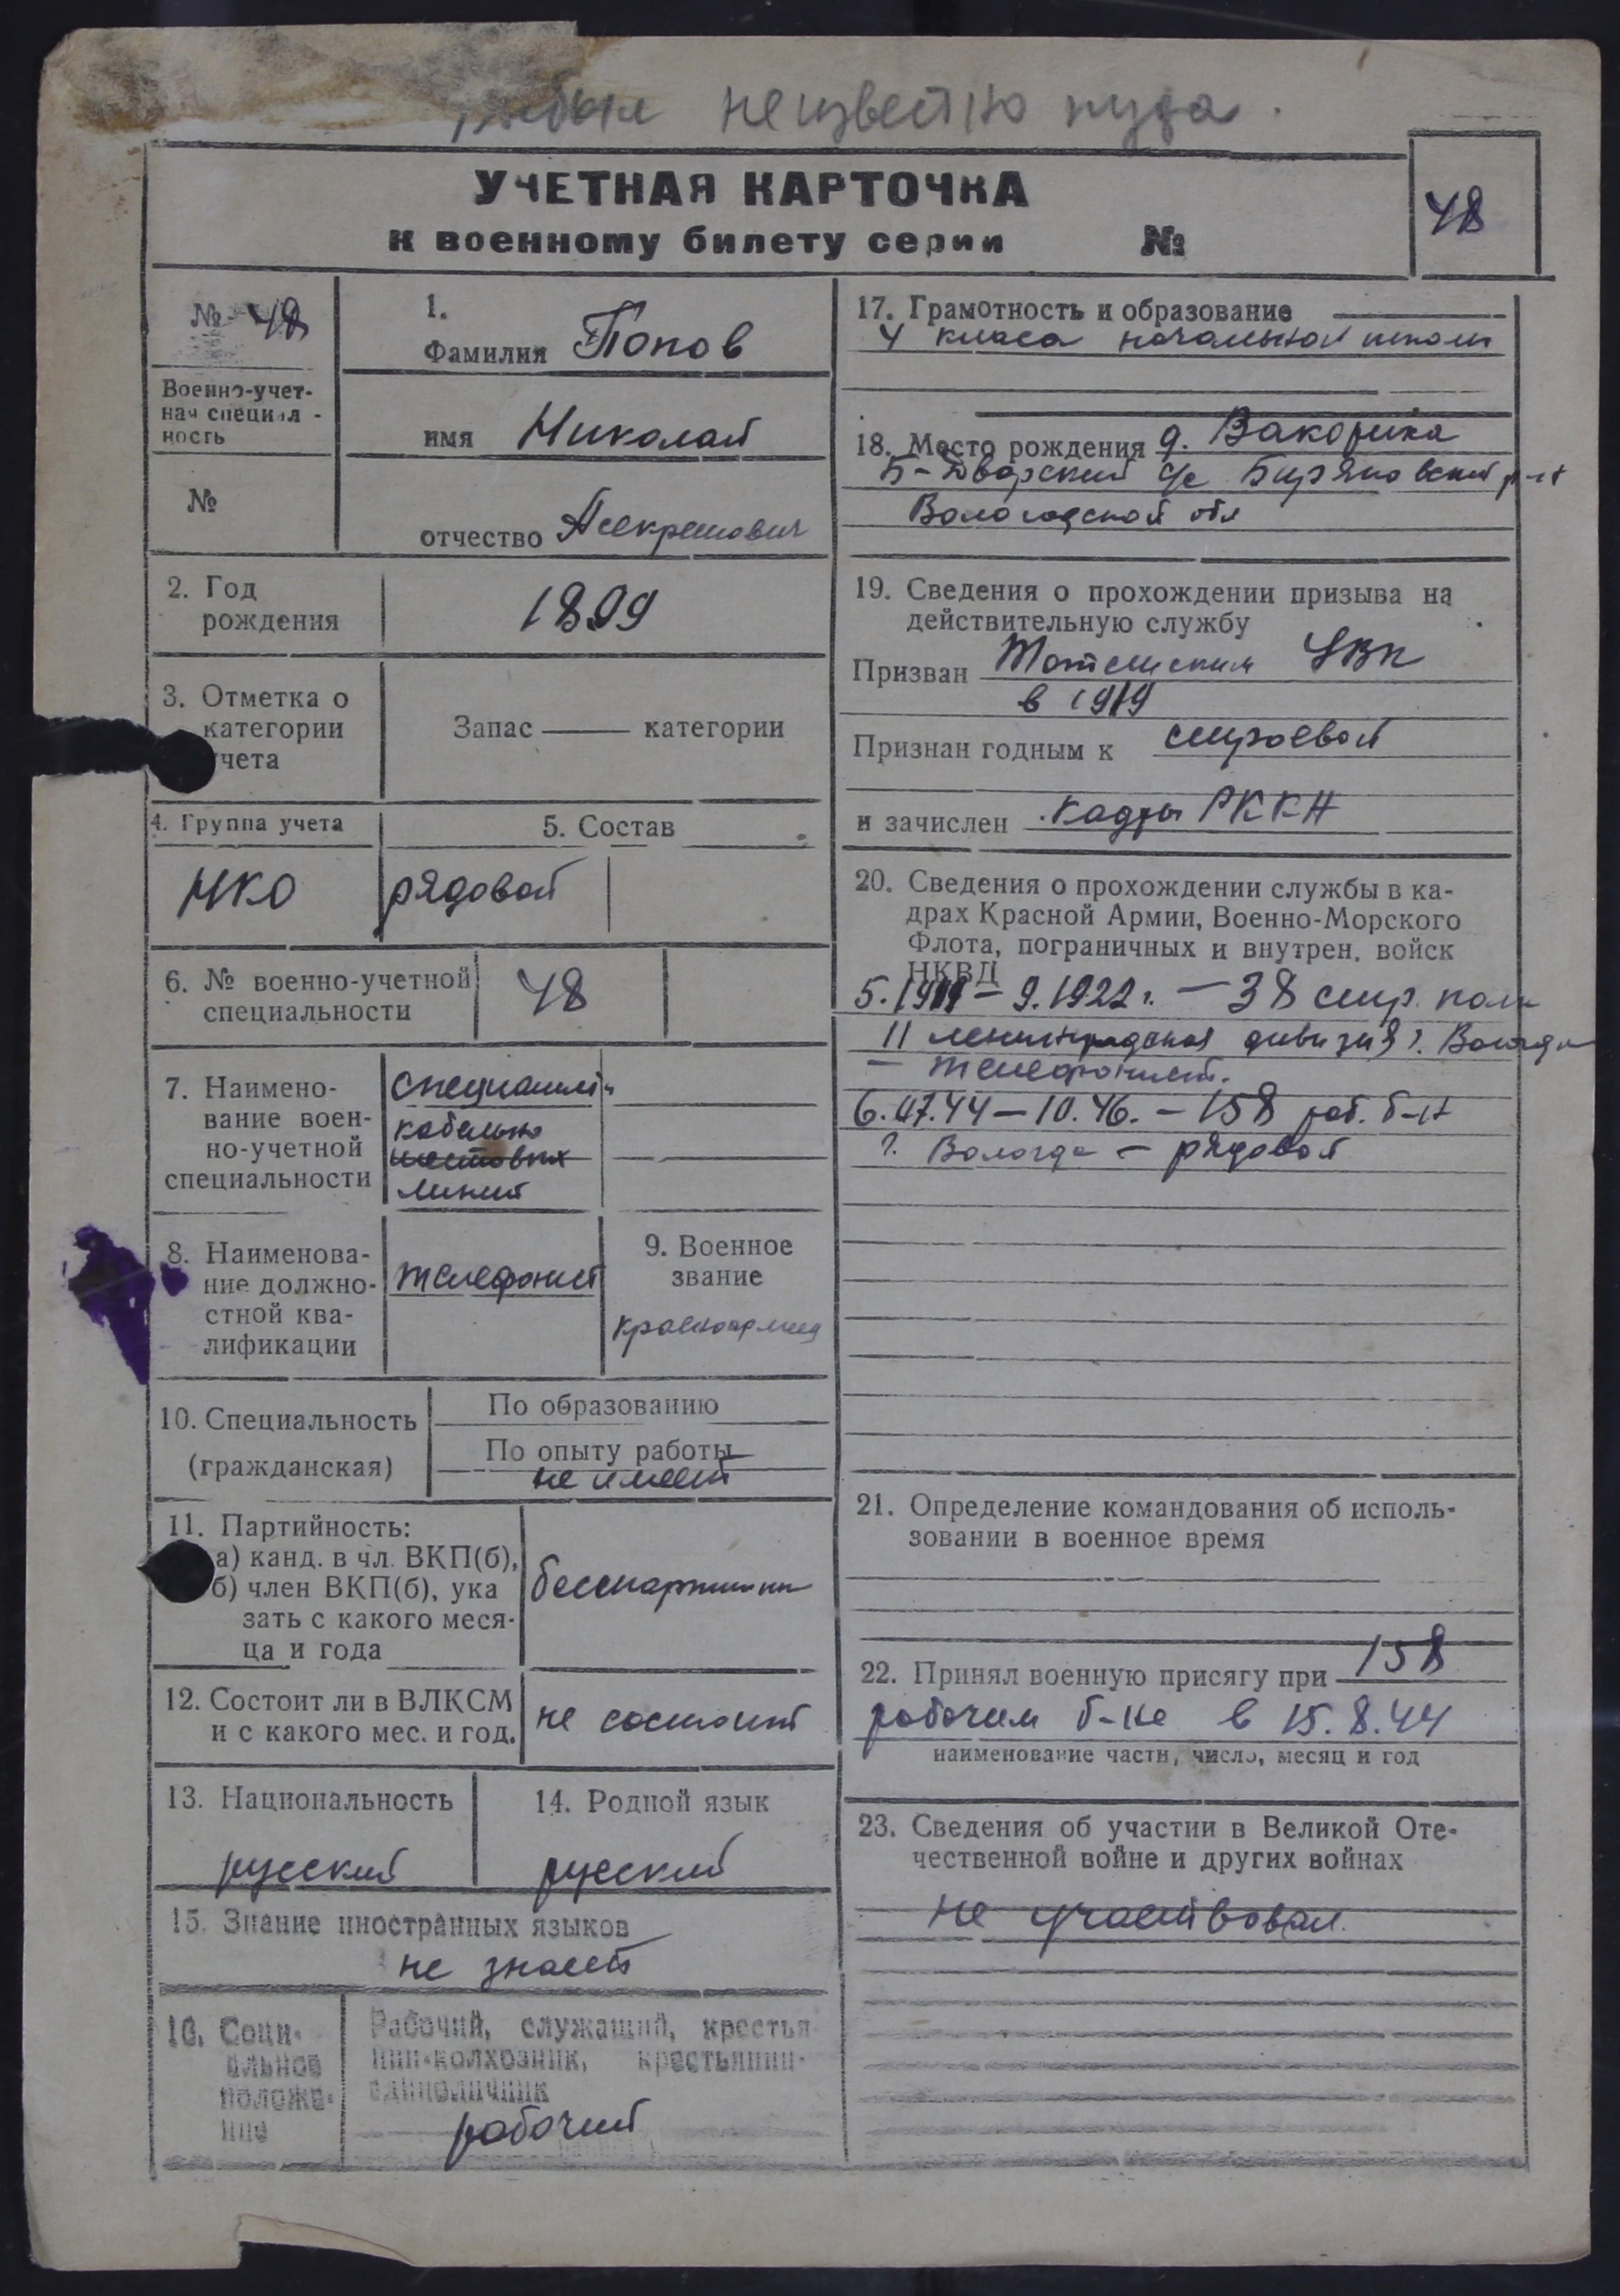 выбыл неизвестно куда.
УЧЕТНАЯ КАРТОЧКА
к военному билету серии №
48
№ 48
Военно-учет-
ная специал-
ность
№
1.
Фамилия Попов
имя Николай
отчество
2. Год
рождения
1899
3. Отметка о
категории
учета
Запас —— категории
4. Группа учета
НКО
5. Состав
рядовой
6. № военно-учетной
специальности
48
7. Наимено-
вание воен-
но-учетной
специальности
кабельно
шестовых
линий
8. Наименова-
ние должно-
стной ква-
лификации
телефонист
9. Военное
звание
красноармеец
10. Специальность
(гражданская)
По образованию
По опыту работы
не имеет
11. Партийность:
а) канд. в чл. ВКП(б),
б) член ВКП(б), ука
зать с какого меся-
ца и года
12. Состоит ли в ВЛКСМ
и с какого мес. и год.
не состоит
13. Национальность
русский
14. Родной язык
русский
15. Знание иностранных языков
не знает
16. Соци-
альное
положе-
ние
Рабочий, служащий, крестья-
нин-колхозник, крестьянин-
единоличник
рабочий
17. Грамотность и образование
4 класса начальной школы
18. Место рождения д.
Б-Дворский с/с Биряковский р-н
Вологодской обл
19. Сведения о прохождении призыва на
действительную службу
Призван Тотемским УВК
в 1919
Признан годным к строевой
и зачислен кадры РККА
20. Сведения о прохождении службы в ка-
драх Красной Армии, Военно-Морского
Флота, пограничных и внутрен. войск
НКВД
5.1919 – 9.1922 г. – 38 стр. полк
11 ленинградская дивизия г. Вологда
– телефонист.
6.07.44 – 10.46. – 158 раб. б-н
г. Вологда – рядовой
21. Определение командования об исполь-
зовании в военное время
22. Принял военную присягу при 158
рабочем б-не в 15.8.44
наименование части, число, месяц и год
23. Сведения об участии в Великой Оте-
чественной войне и других войнах
не участвовал.